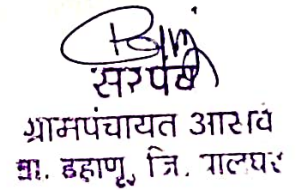 सरपंच
ग्रामपंचायत आसवे
ता. डहाणू, जि. पालघर